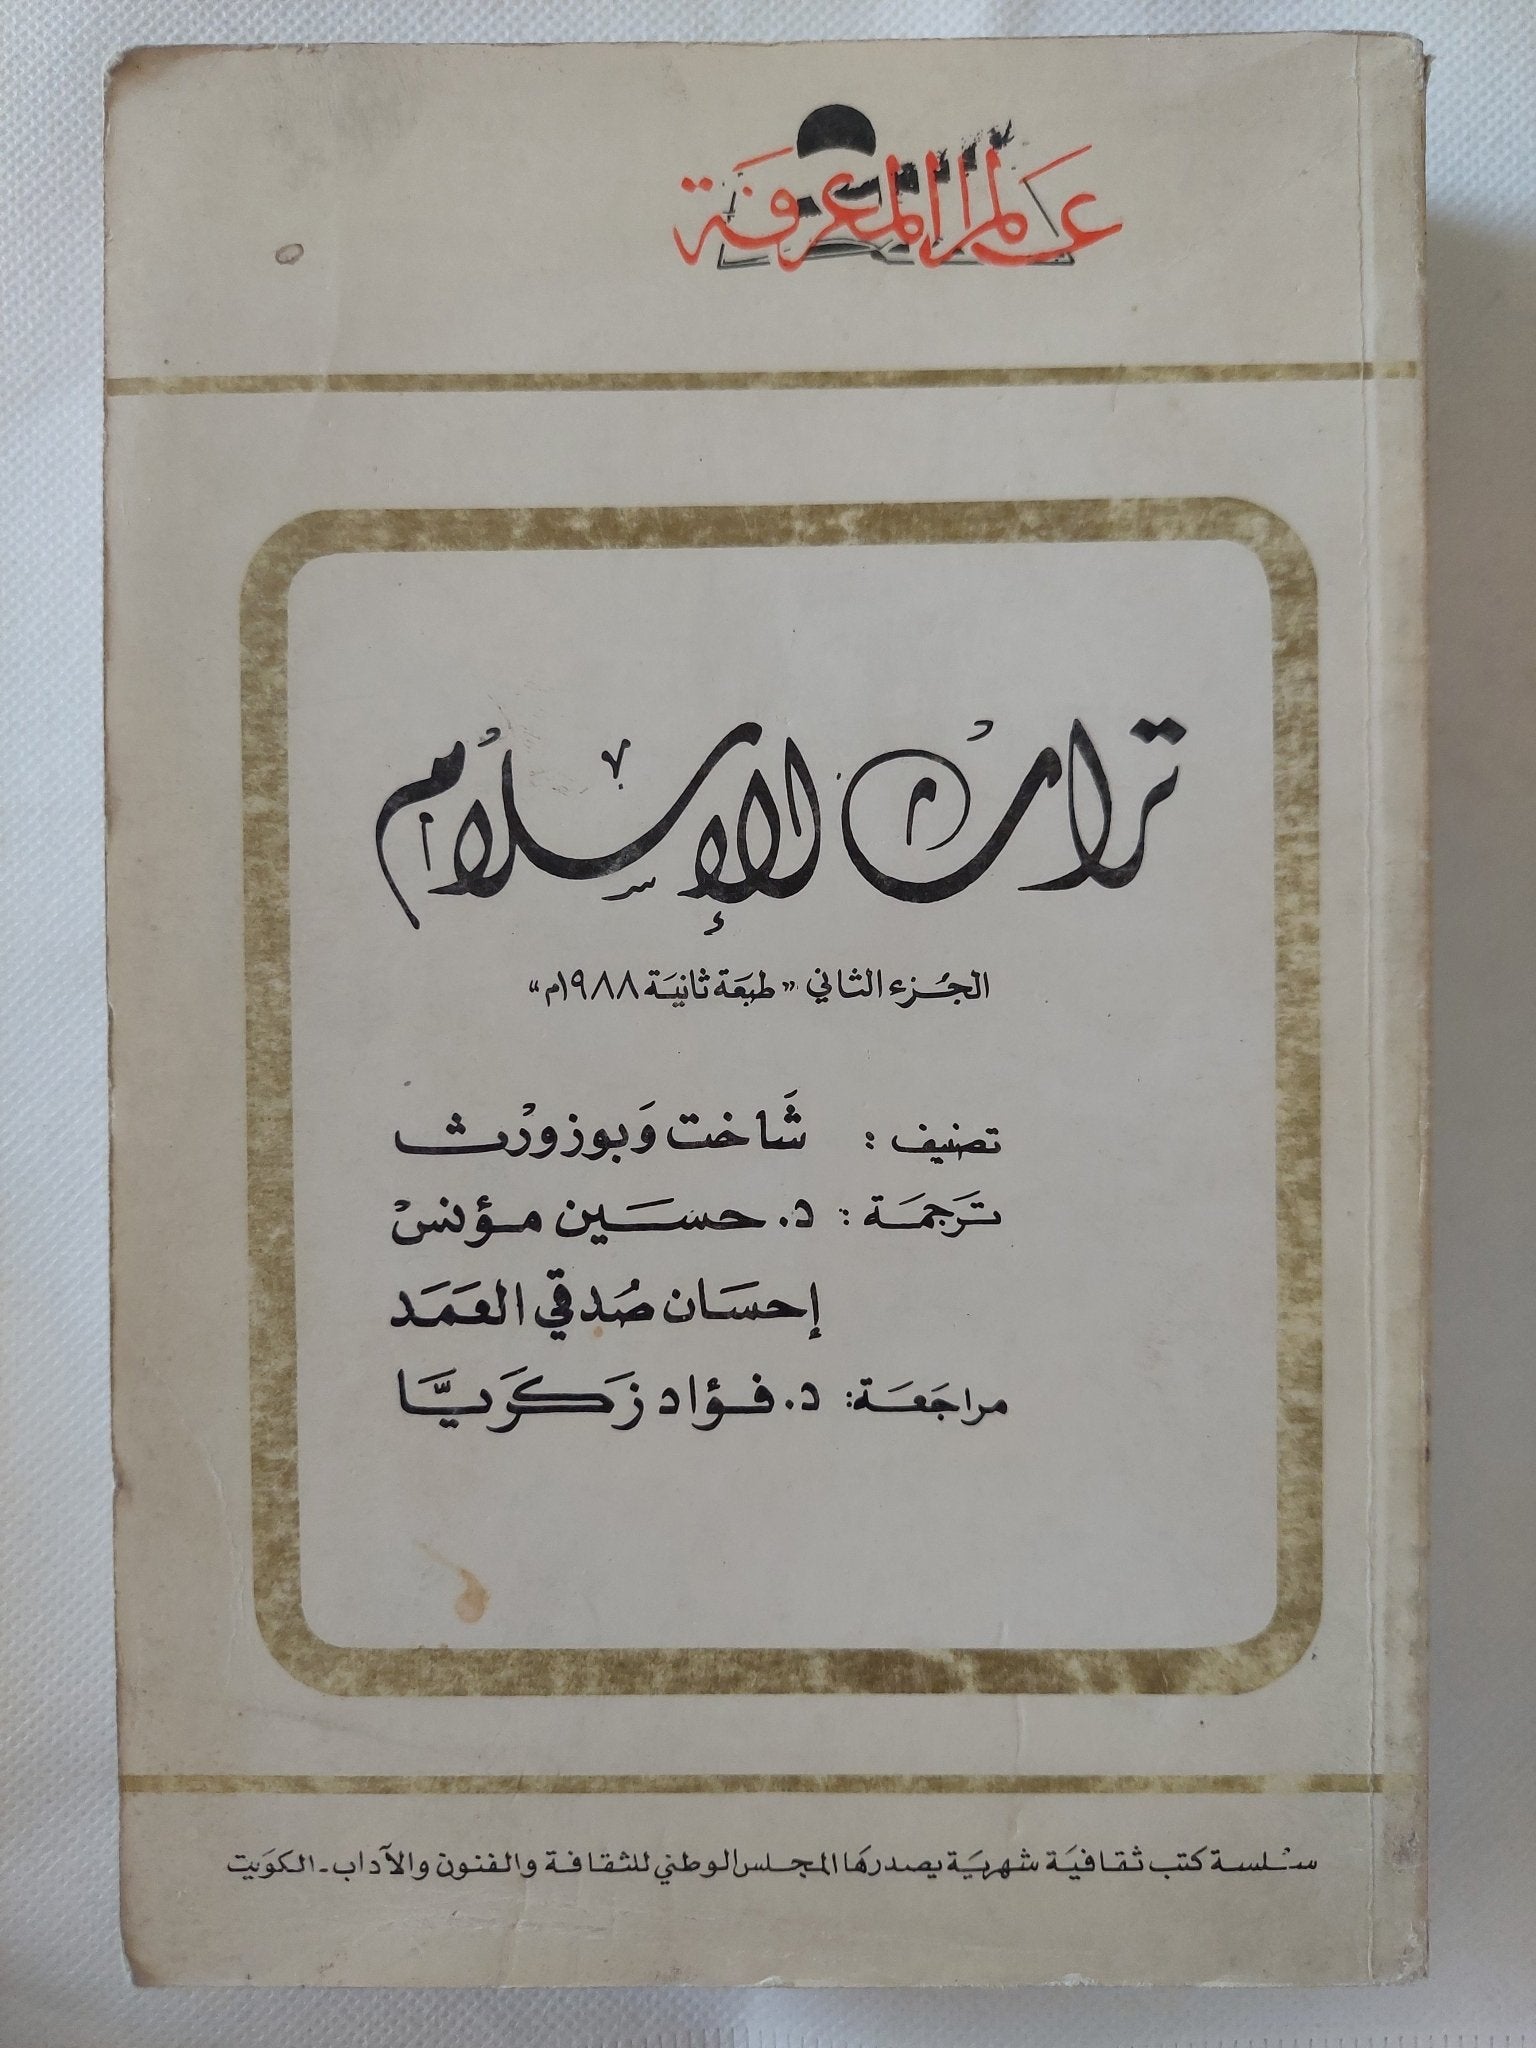 عالم المعرفة
تراث الإسلام
الجزء الثاني «طبعة ثانية ١٩٨٨م»
تصنيف : شاخت وبوزورث
ترجمة : د. حسين مؤنس
إحسان صدقي العمد
مراجعة : د. فؤاد زكريا
سلسلة كتب ثقافية شهرية يصدرها المجلس الوطني للثقافة والفنون والآداب - الكويت